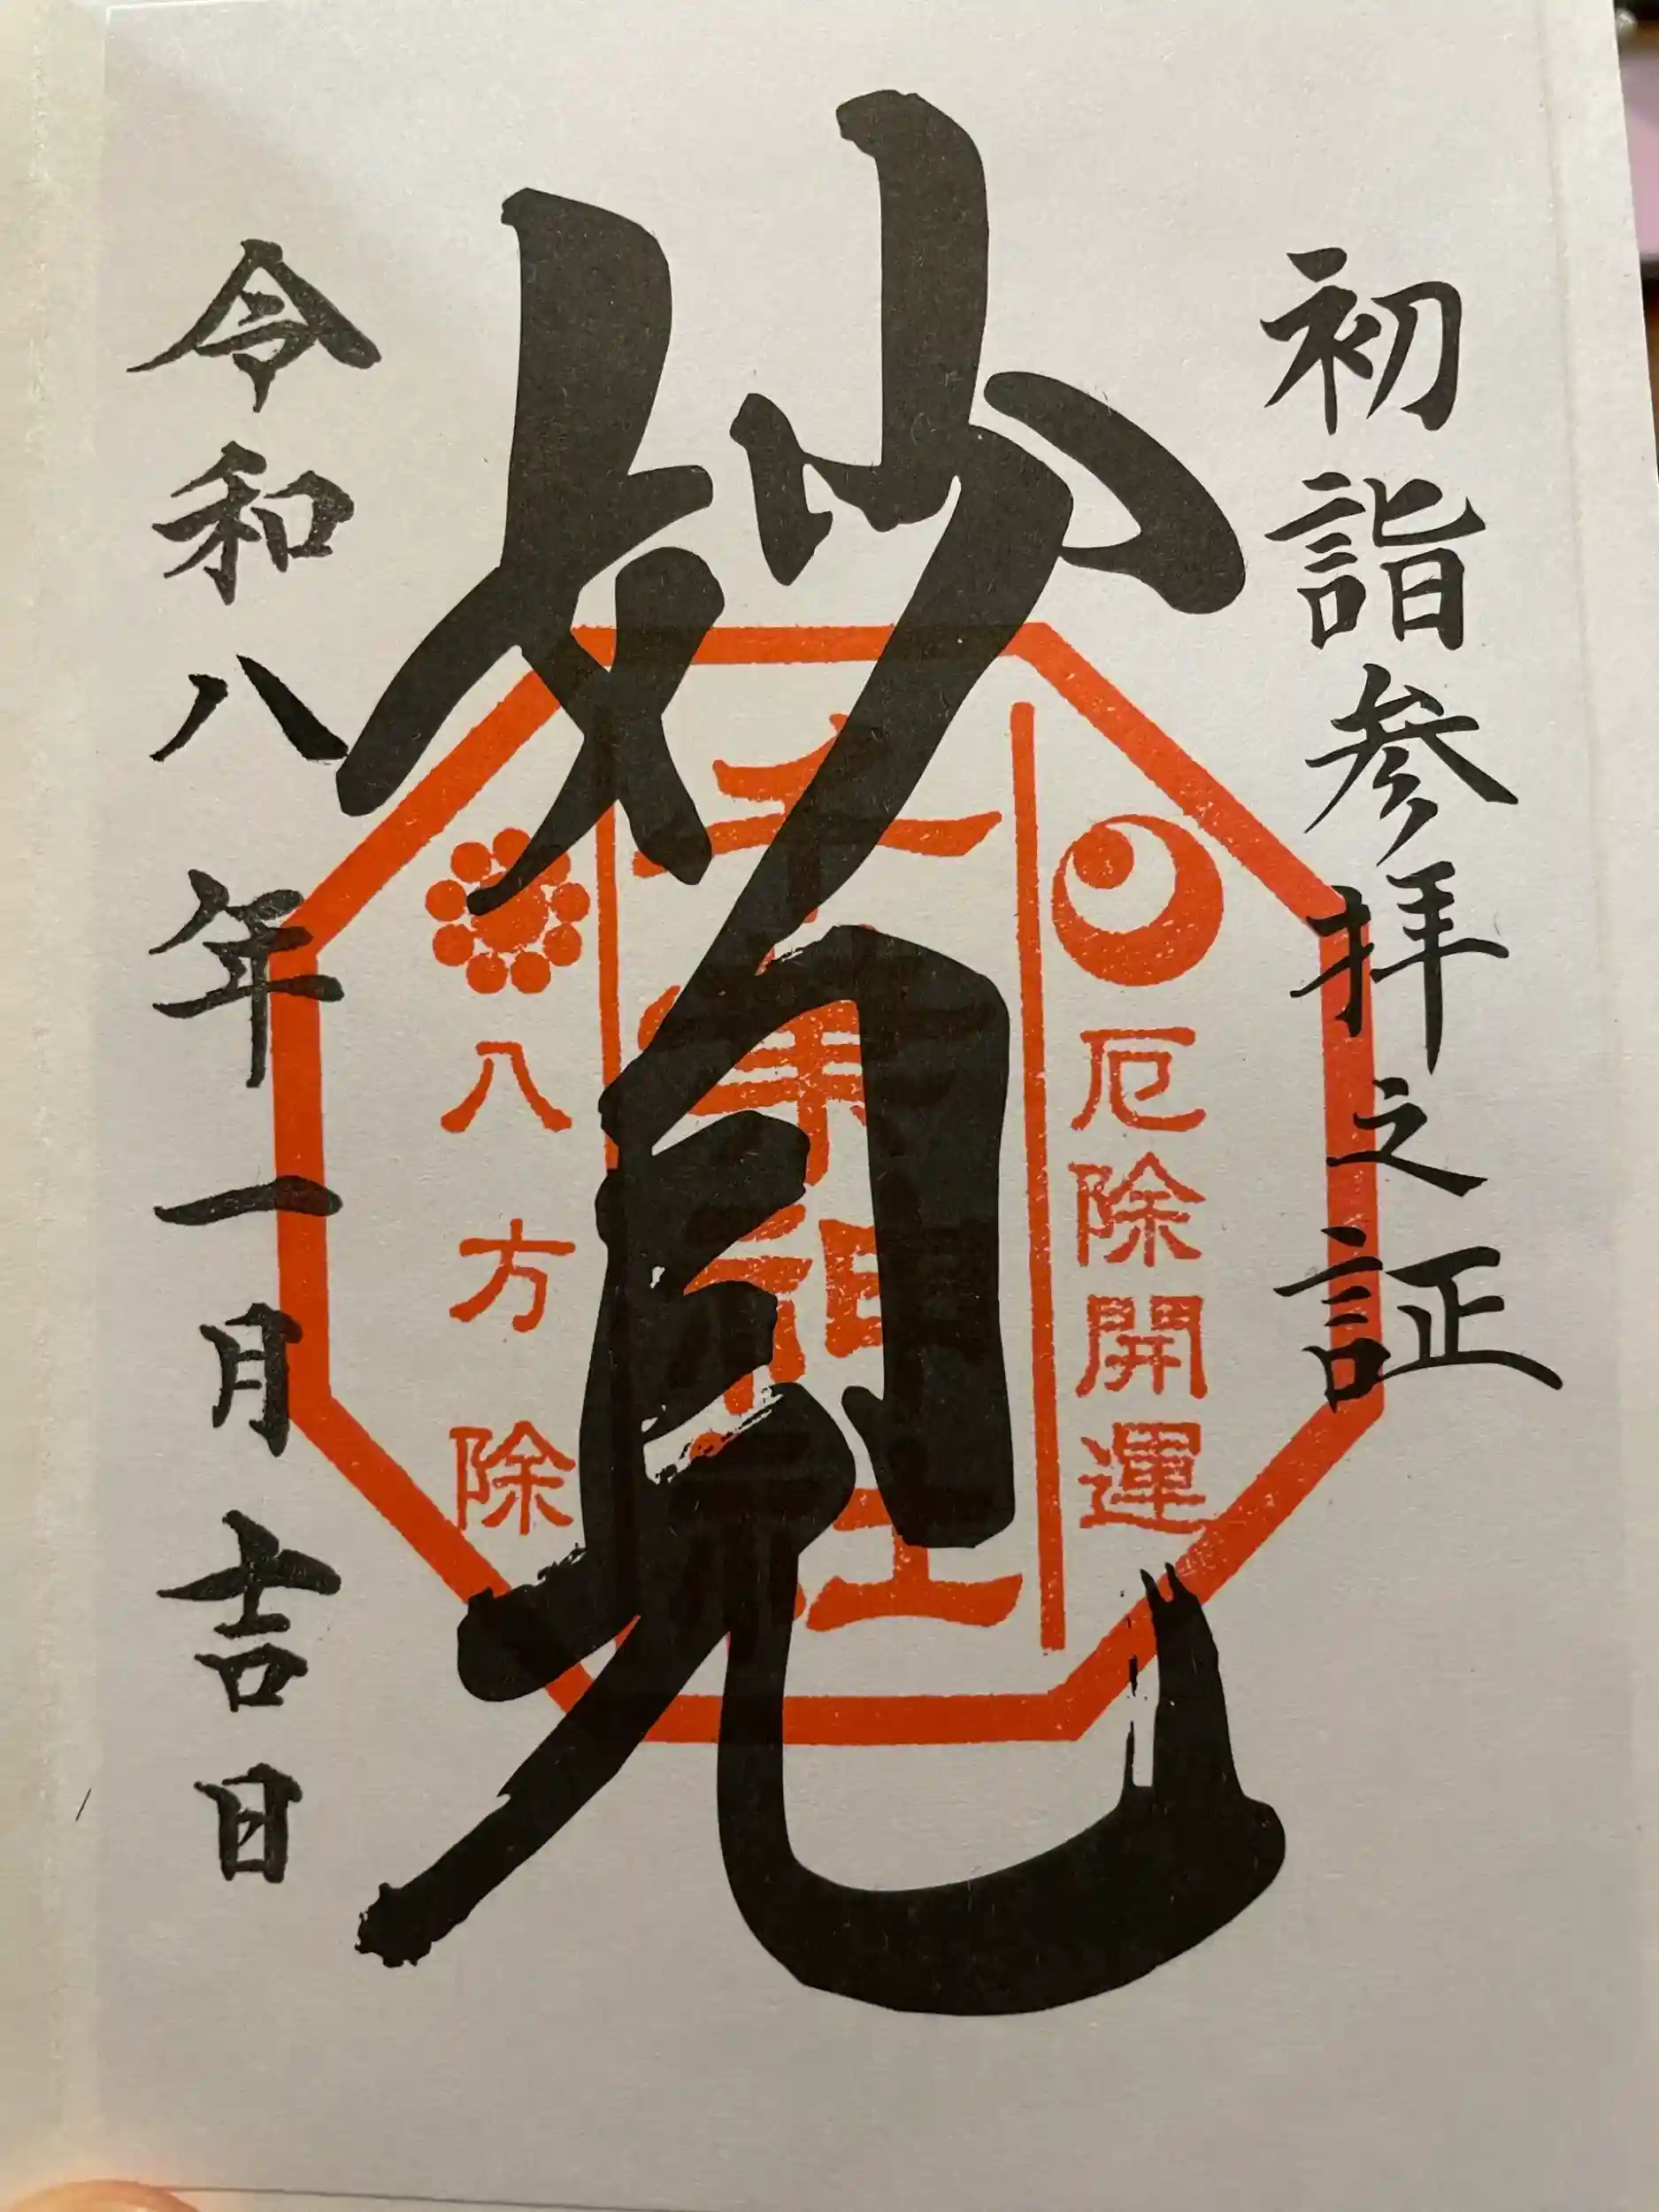 初詣参拝之証
妙見
厄除開運
千葉神社
八方除
令和八年一月吉日